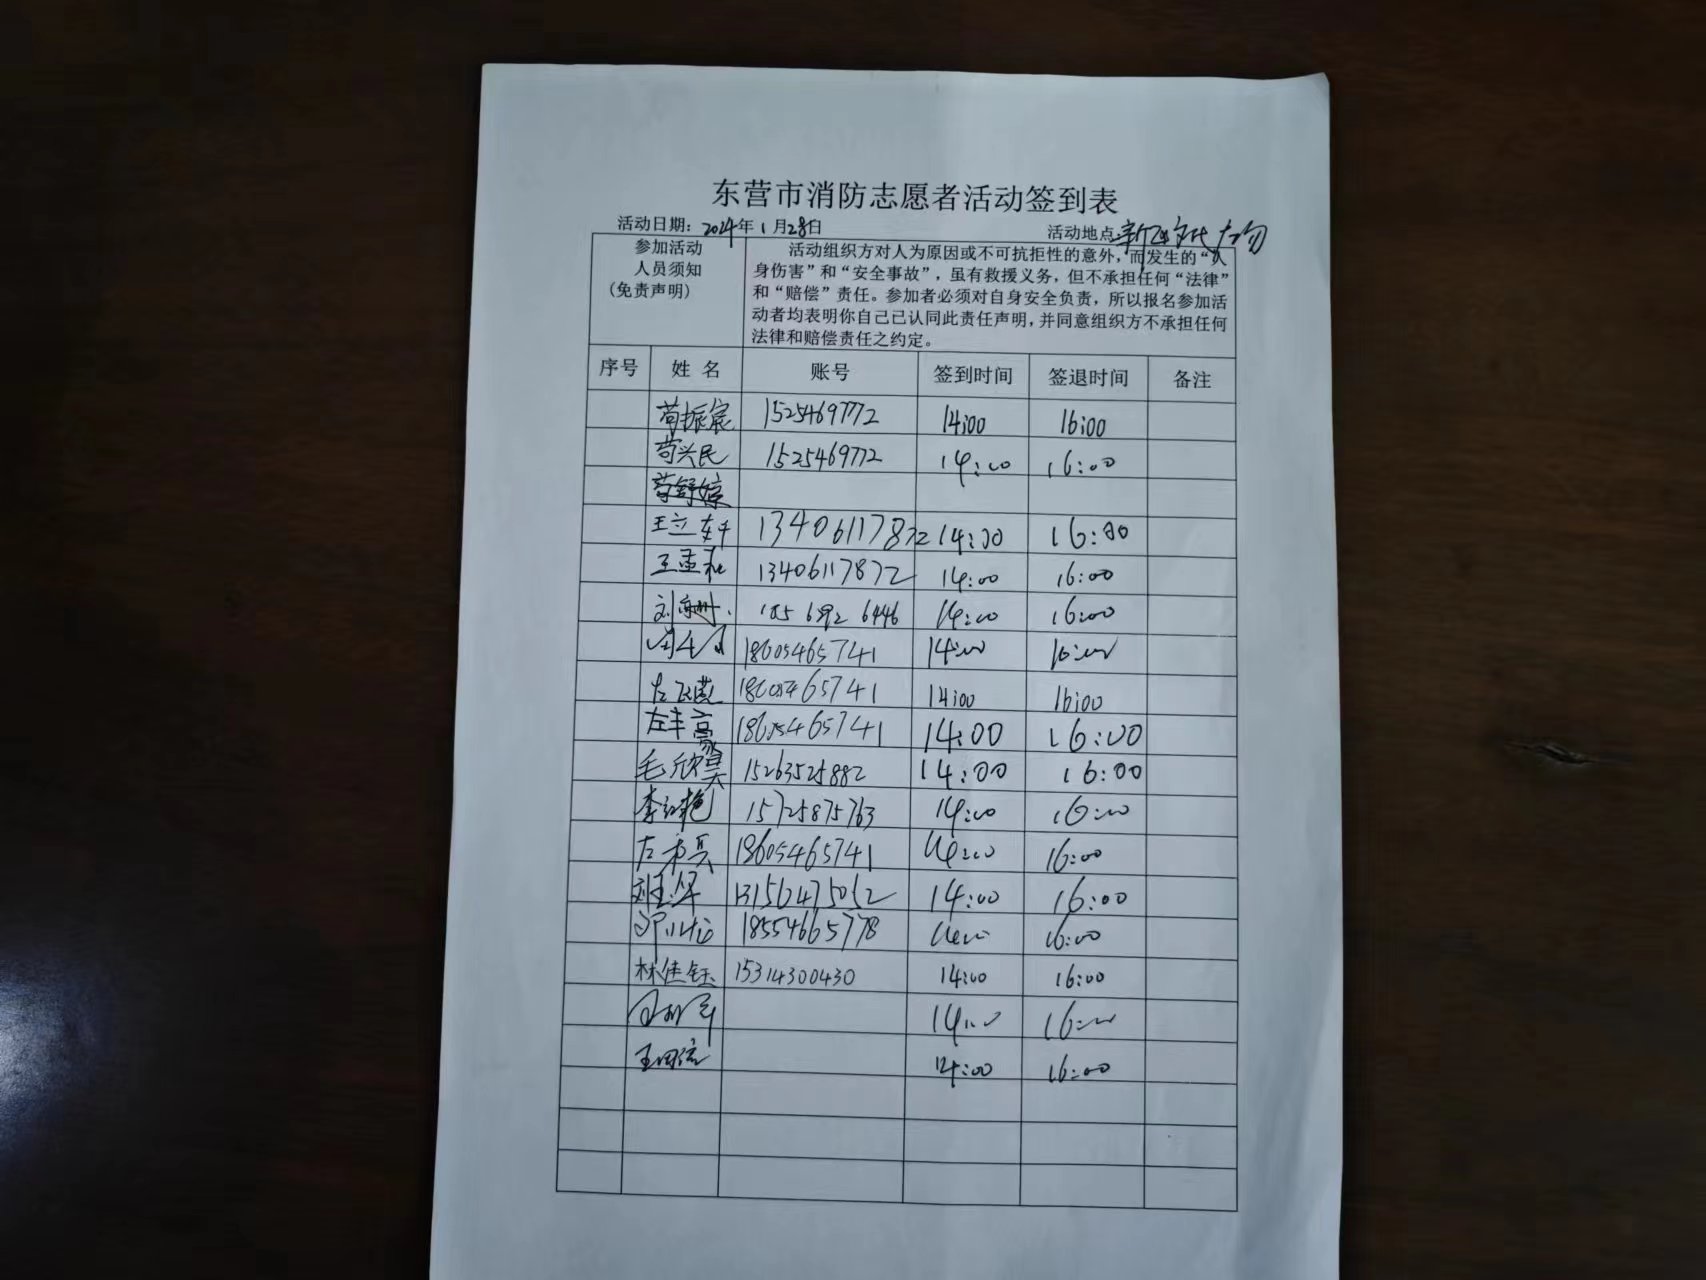 东营市消防志愿者活动签到表
活动日期：2024年1月28日 活动地点
参加活动人员须知(免责声明)
活动组织方对人为原因或不可抗拒性的意外，而发生的“人
身伤害”和“安全事故”，虽有救援义务，但不承担任何“法律”
和“赔偿”责任。参加者必须对自身安全负责，所以报名参加活
动者均表明你自己已认同此责任声明，并同意组织方不承担任何
法律和赔偿责任之约定。
序号 姓名 账号 签到时间 签退时间 备注
苟振宸 1525469772 14:00 16:00
苟兴民 1525469772 14:00 16:00
苟舒婷
王立轩 13406117872 14:00 16:00
王孟和 13406117872 14:00 16:00
刘 6446 14:00 16:00
18605465741 14:00 16:00
左飞燕 18605465741 14:00 16:00
左丰豪 18605465741 14:00 16:00
毛欣昊 15263525882 14:00 16:00
李红艳 15725875763 14:00 16:00
左秀兵 18605465741 14:00 16:00
刘 13156475052 14:00 16:00
18554665778 14:00 16:00
林佳钰 15314300430 14:00 16:00
14:00 16:00
王 14:00 16:00